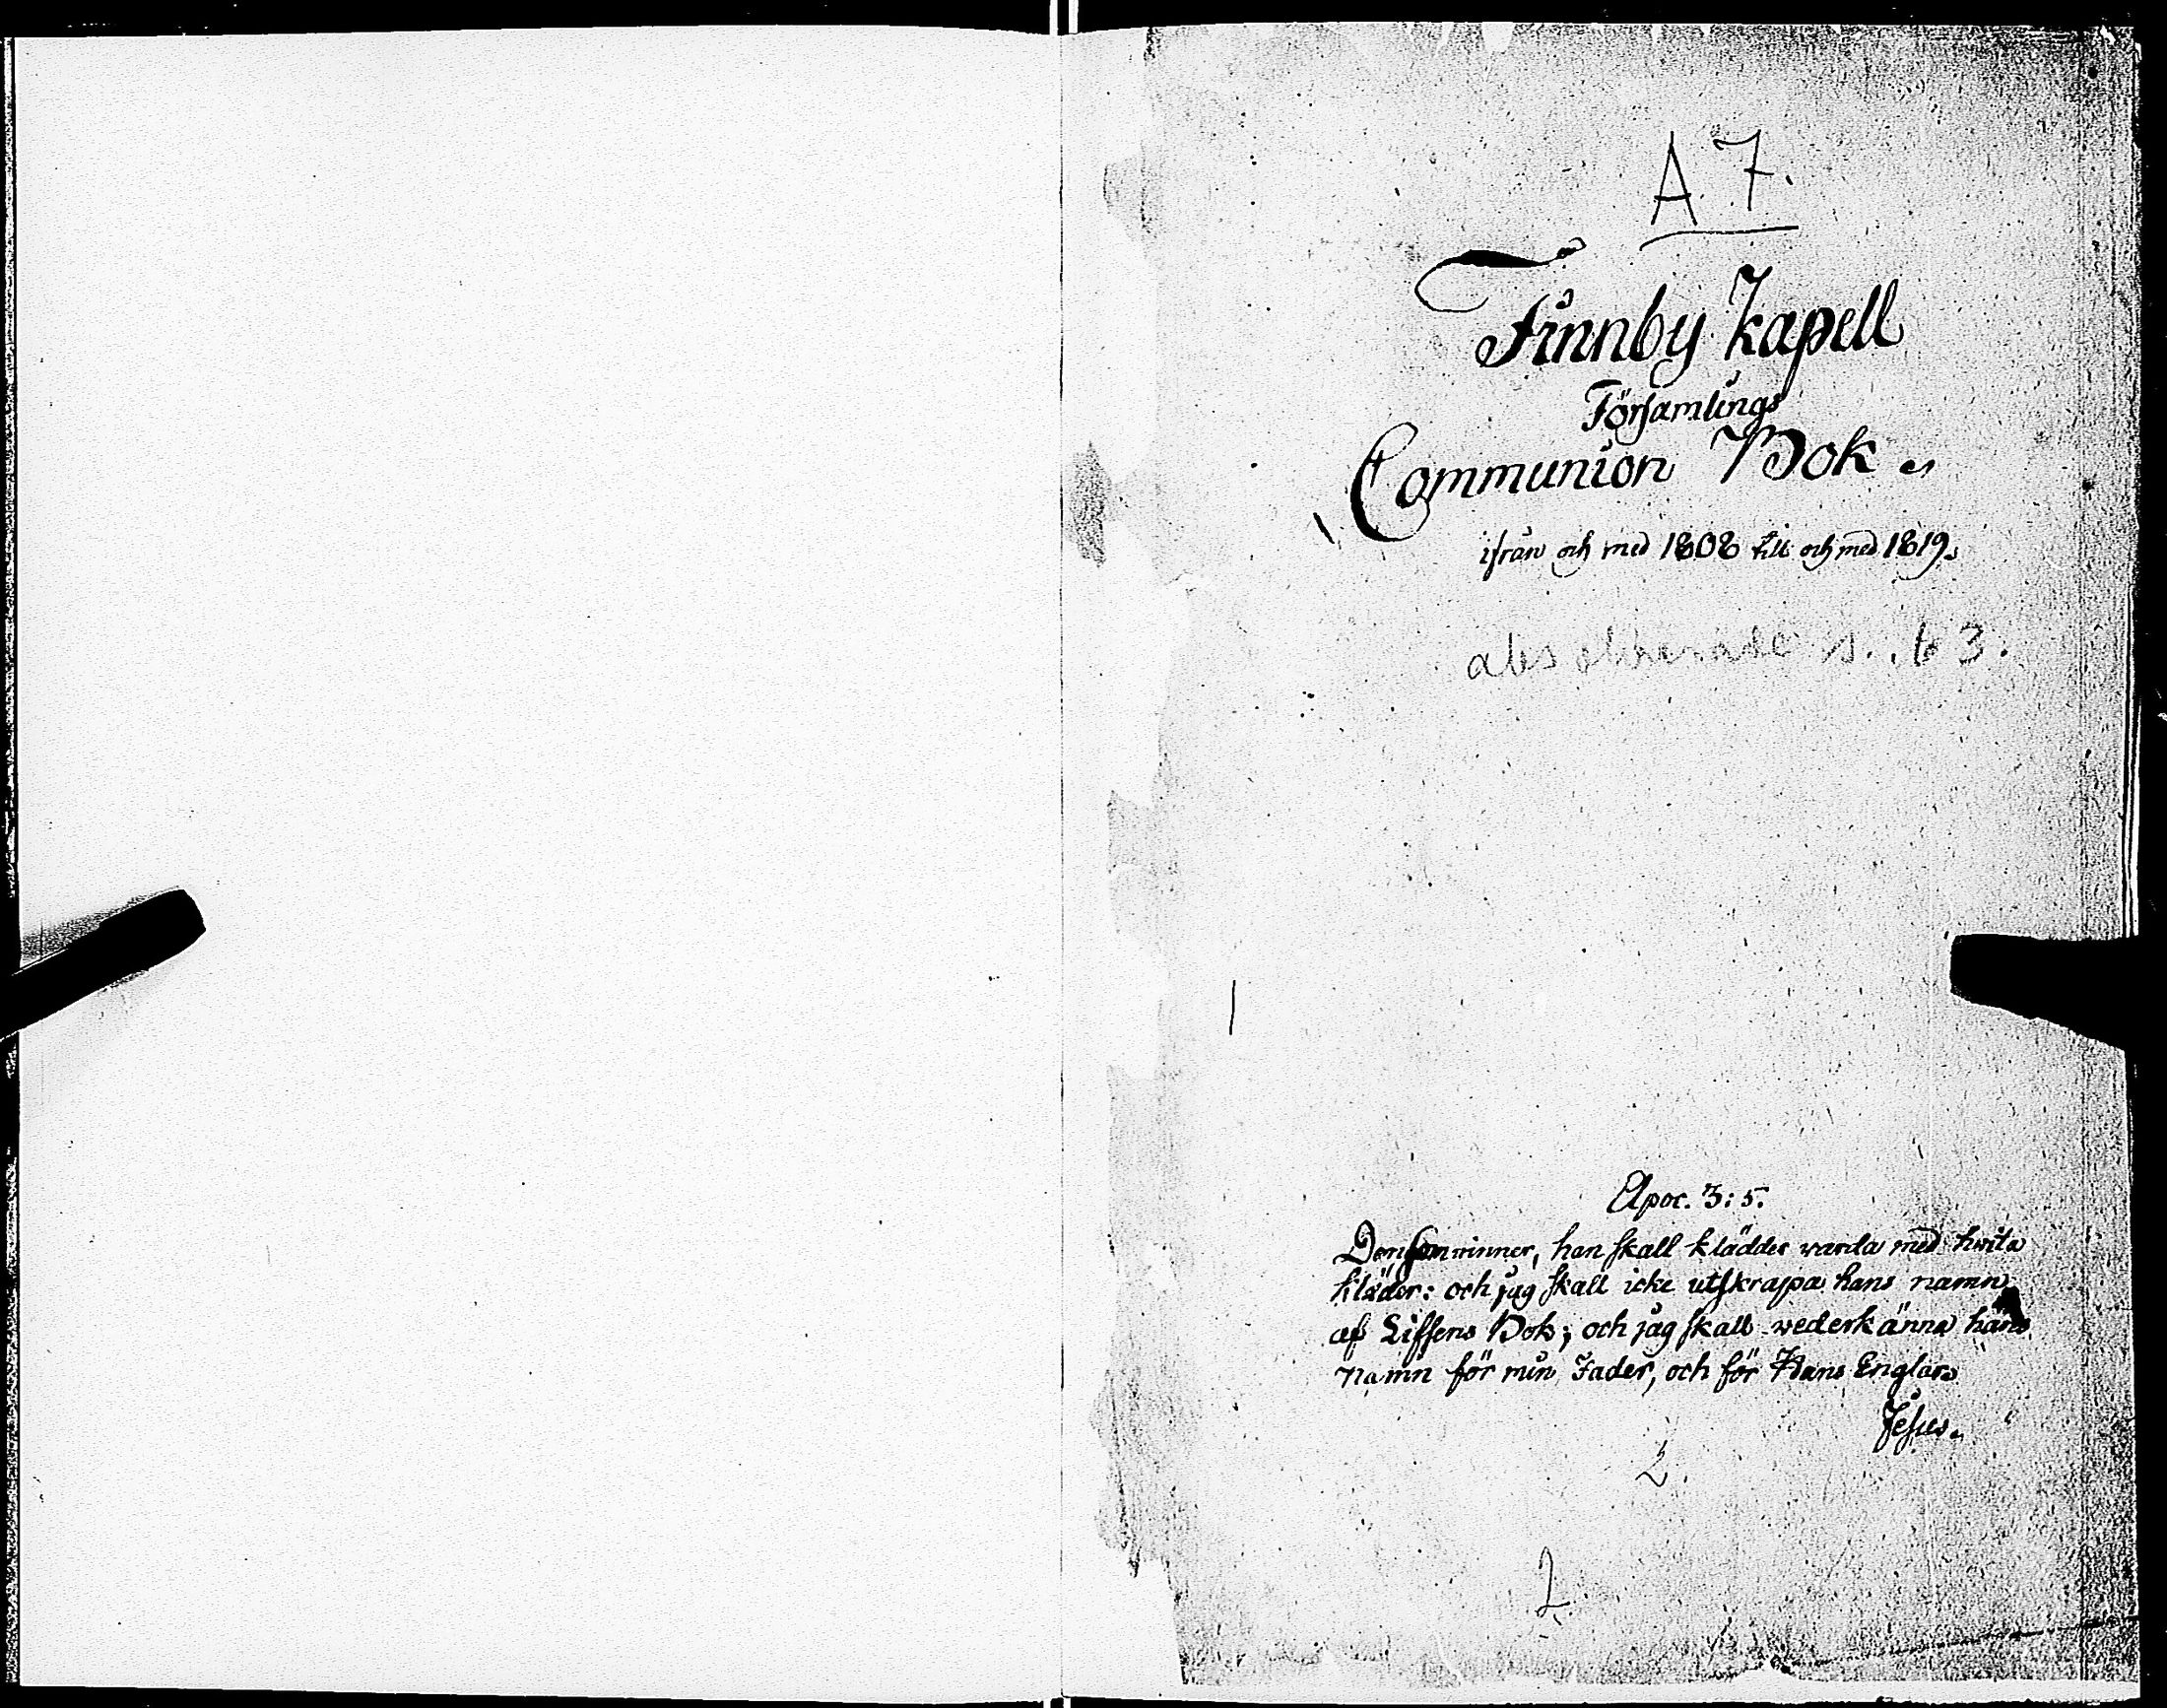 A. 7.
Finnby Kapell
Församlings
Communion Bok.
ifrån och med 1808 till och med 1819.
absolverade s. 63.
Apoc. 3: 5.
Den som winner, han skall kläddes warda med hwita
kläder: och jag skall icke utskrapa hans namn
af Liffsens Bok; och jag skall wederkänna hans
namn för min Fader, och för Hans Englar.
Jesus.
2.
2.